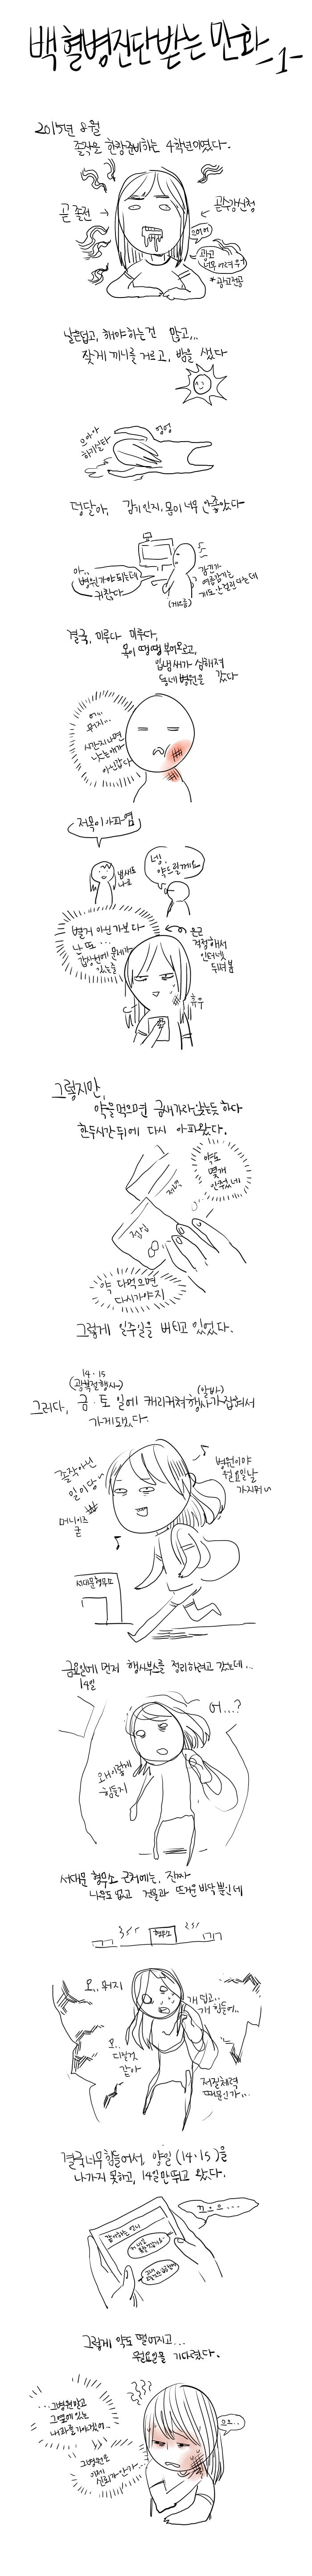 백혈병진단받는 만화 -1-
2015년 8월
졸작을 한창준비하는 4학년이었다.
곧 졸전 →
← 곧수강신청
← 광고
너무어려우?
* 광고전공
날은덥고, 해야하는건 많고,..
잦게 끼니를 거르고, 밤을 샜다
으아아
하기싫다
엉엉
덩달아, 감기인지, 몸이 너무 안좋았다
아..
병원가야되는데
귀찮다
감긴가
여름감기는
개도 안걸린다는데
결국, 미루다 미루다,
목이 땡땡부어오르고,
입냄새가 심해져
동네병원을 갔다
시간지나면
낫는애가
아닌갑다
저목이아파염
냄새도
나요
넹
약드릴께요
별거 아닌가보다
난 또...
갑상선에 문제가
있는줄
은근
걱정해서
인터넷
뒤져봄
휴우
그렇지만,
약을먹으면 금새가라앉는듯 하다
한두시간뒤에 다시 아파왔다.
약도
몇개
안줬네
약 다먹으면
다시가야지
그렇게 일주일을 버티고 있었다.
14·15
(광복절행사)
(알바)
그러다, 금·토 일에 캐리커쳐행사가잡혀서
가게됐다.
졸작아닌
일이당~
머니이즈
굳
병원이야
월요일날
가지뭐~
서대문형무소
금요일에 먼저 행사부스를 정리하려고 갔는데...
14일
어...?
왜이렇게
힘들지
서대문 형무소 근처에는, 진짜
나무도 없고 건물과 뜨거운 바닥 뿐인데
형무소
오.. 뭐지
개 덥고..
개 힘들어..
오..
디질것
같아
저질체력
때문인가...
결국너무힘들어서, 양일(14·15)을
나가지 못하고, 14일만뛰고 왔다.
끄으으...
그렇게 약도 떨어지고...
월요일을 기다렸다.
...그병원말고
그옆에 있는
내과를가야겠어...
그병원은
이제
신뢰가안가...